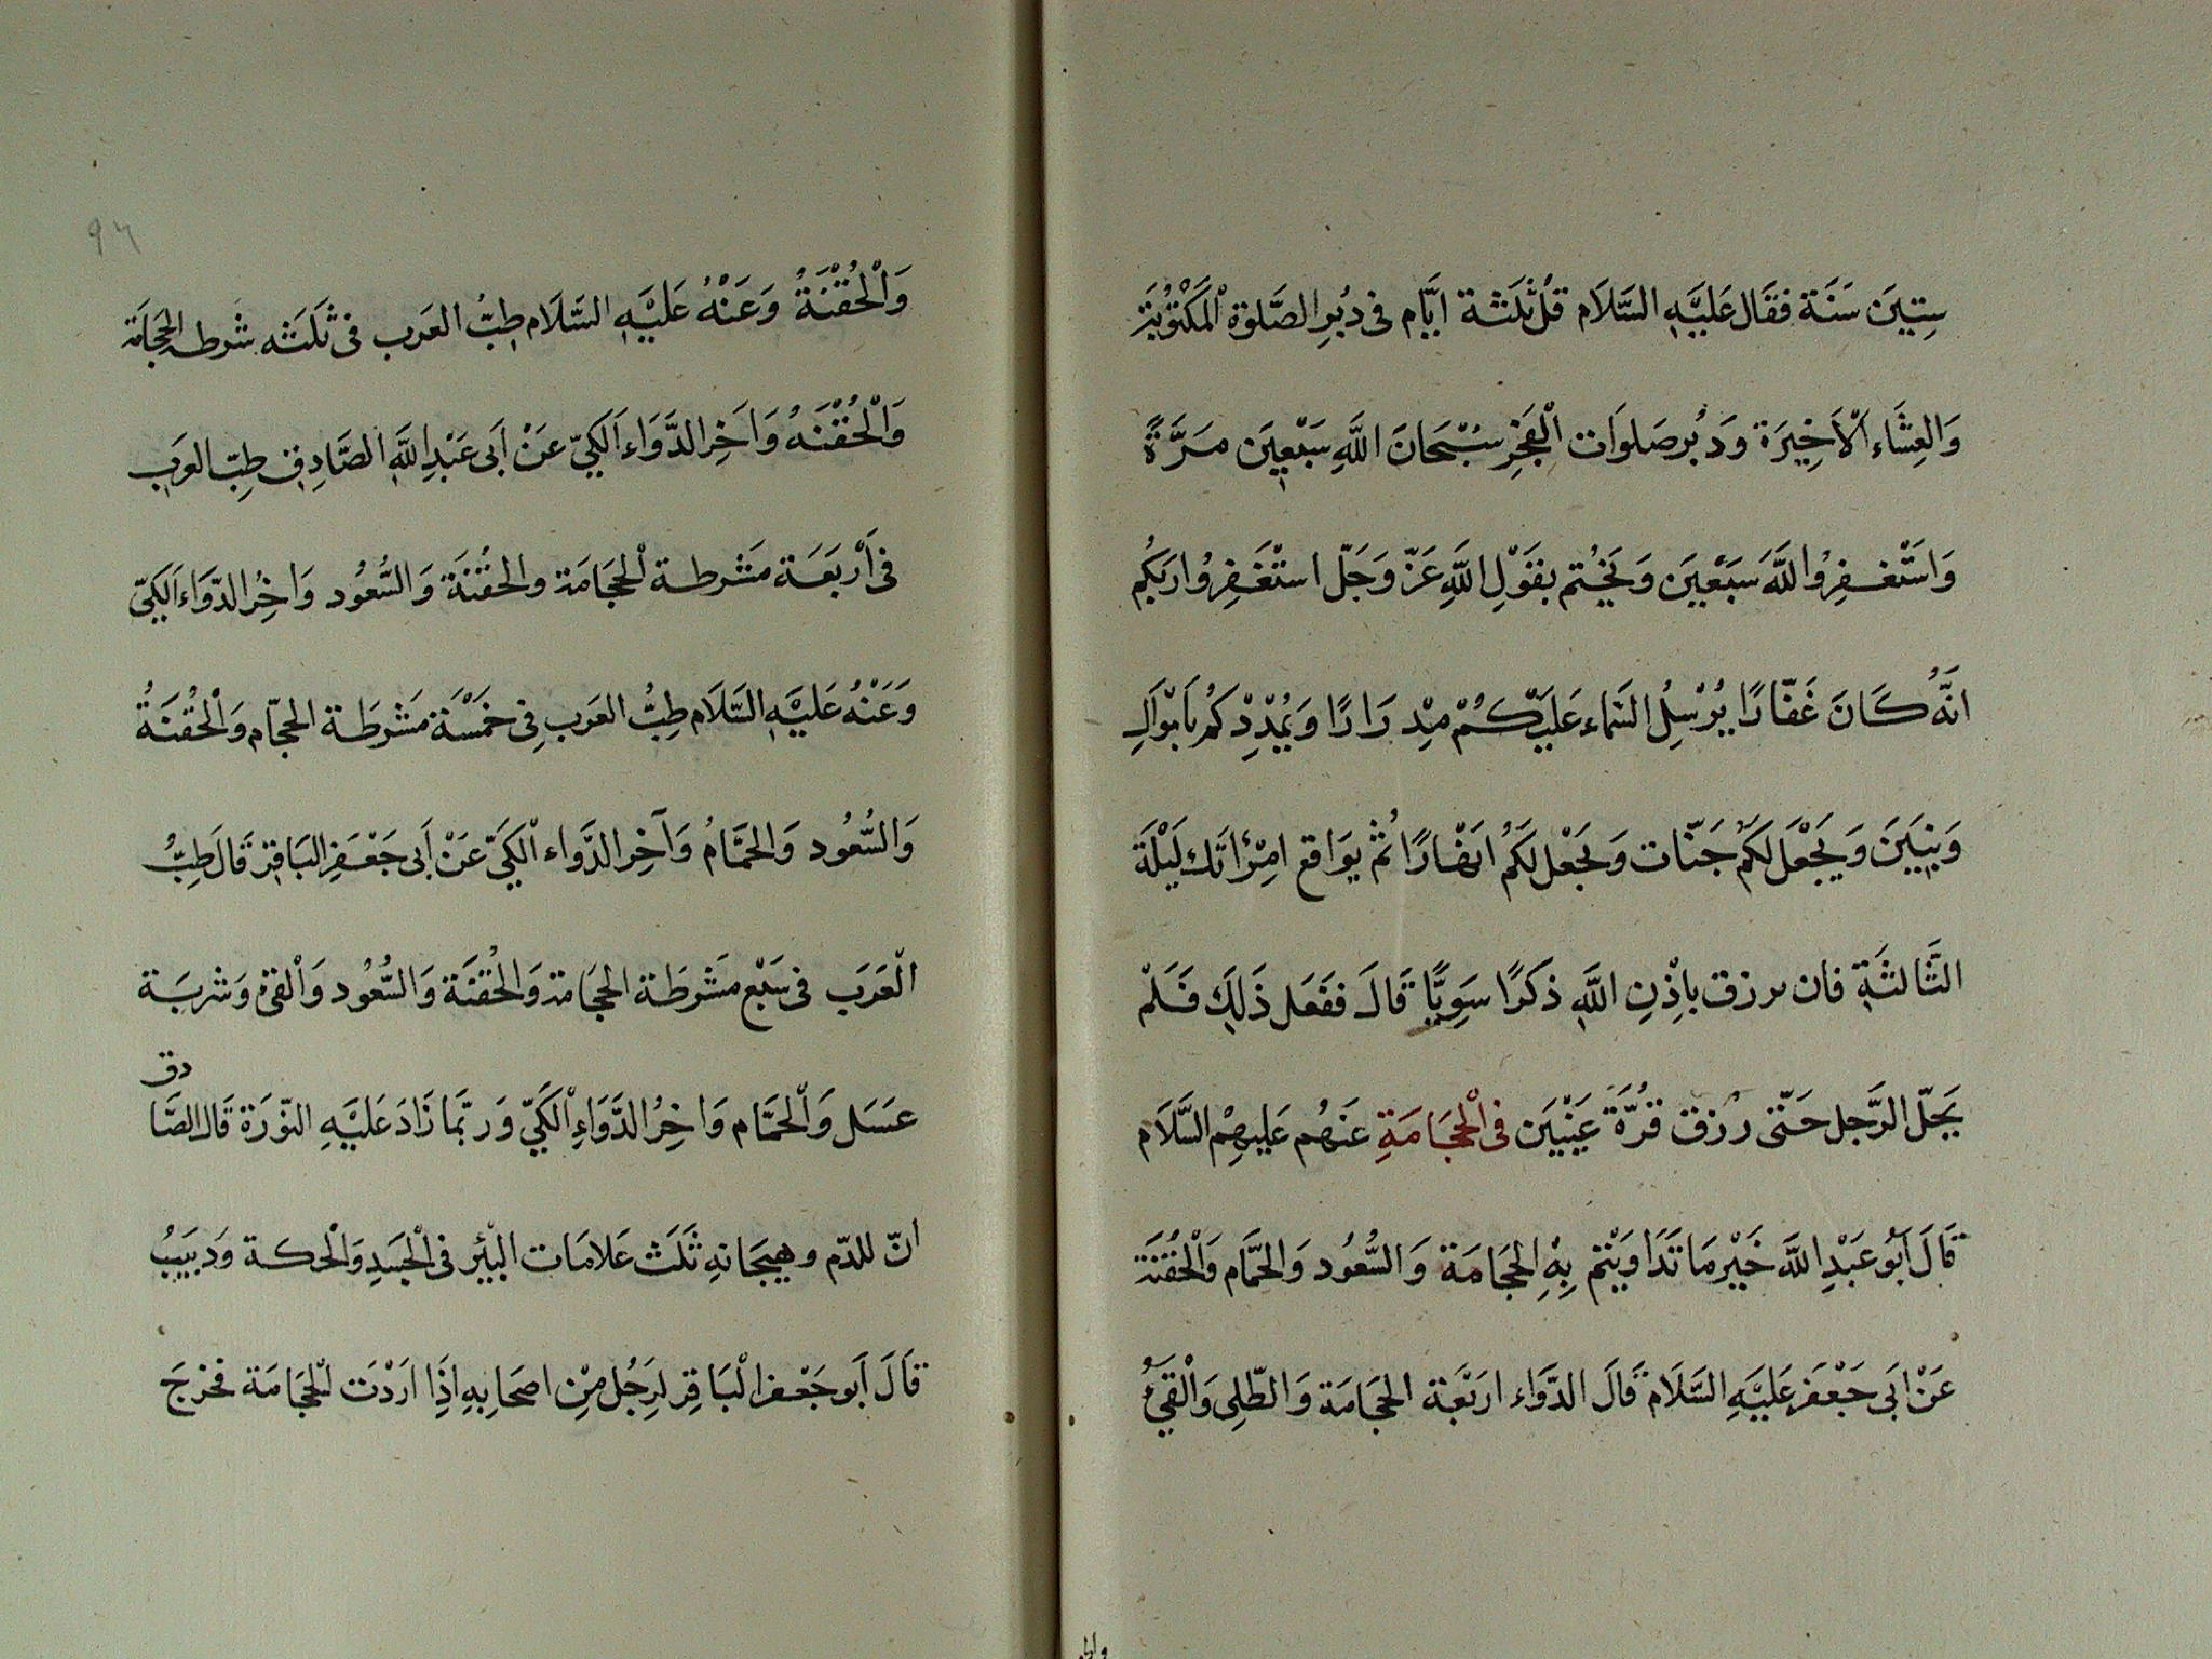 سِتِيَن سَنَة فقَال عَلَيْهِ السَّلَام قل ثلثة ايّام فى دُبُرِ الصَّلوة الْمَكْتُوبَة
وَالعِشَاء الْاَخِيرَة وَدُبر صَلوَات الْفَجْرِ سُبْحَانَ اللَّهِ سَبْعِين مَرَّةً
وَاسْتَغفِرُوا للَّهَ سَبْعِين وَيَخْتِم بقَوْلِ اللَّهِ عَزّ وَجَلّ استَغفِرُوا رَبَكُم
انَّهُ كَانَ غَفّارًا يُرْسِلُ السَّمَاء عَلَيْكُمْ مِدْرَارًا وَيُمْدِدْكُم بَامْوَالِ
وَبنِيَن وَيَجْعَل لَكَم جَنّات وَيَجْعَل لَكُم انهَارًا ثُم يوَاقع امِرْاتَك لَيْلَة
الثَّالثَةِ فان يرزق باِذْنِ اللَّهِ ذكَرًا سَوِيًّا قَالَ ففَعَل ذَلِك فَلَمْ
يَحَلّ الرَّجل حَتّى رُزق قُرَّةَ عَيْنَيْن فى الْحِجَامَةِ عَنهُم عَليهِم السَّلَام
قَالَ اَبُو عَبْدِ اللَّه خَيْر مَا تَدَاويْتم بِهِ الحِجَامَة وَالسُّعُود وَالحَمَّام وَالْحُقْنَة
عَنْ ابَى جَعْفَر عَلَيْهِ السَّلَام قَالَ الدَّوَاء ارَبَعَة الحجَامَة وَالطّلِى وَالْقَىُ
والحـ
٩٦
وَالْحُقْنَةُ وَعَنْهُ عَلَيْهِ السَّلَام طِبُّ العَرب فى ثَلَثَه شَرطه الحِجَامَة
وَالْحُقْنَهُ وَاخِر الدَّوَاء الكَىّ عَنْ اَبى عَبْدِ اللَّهِ الصَّادِق طِبّ العرَب
فى اَرْبَعَة مَشرطة الحجَامَة والحقْنَة وَالسُّعُود وَاخِرُ الدَّوَاء الَكَىّ
وَعَنْهُ عَلَيْهِ السَّلَام طِبُّ العَرب فِى خَمْسَة مَشْرَطَة الحجّام وَالْحُقْنَةُ
وَالسُّعُود وَالحَمَّامُ وَآخِر الدَّوَاء الْكَىَّ عَنْ اَبى جَعْفَرِ البَاقِر قَالَ طِبُّ
الْعَرَب فى سَبْع مَشْرَطَة الحجَامة وَالحُقْنَة وَالسُّعُود وَالْقىْ وَشربَة
عَسَل وَالْحَمَّام وَاخِرُ الدَّوَاءِ الْكَىّ وَربّمَا زَادَ عَلَيْهِ النّوَرَة قَالَ الصَّادق
انّ للدّم وهيجَانهِ ثَلَث عَلامَات البثر فى الْجَسَدِ وَالْحكة وَدبيَبُ
قَالَ اَبو جَعْفر الْبَاقِر لِرَجُل مِن اصحَابِهِ اِذَا اَرْدَت الْحجَامَة فخرجَ